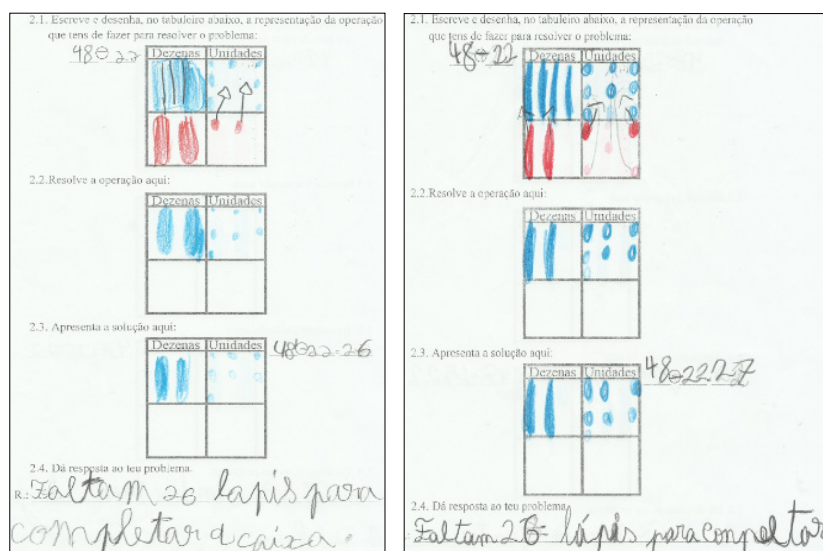 2.1. Escreve e desenha, no tabuleiro abaixo, a representação da operação
que tens de fazer para resolver o problema:
48⊖22
Dezenas Unidades
2.2.Resolve a operação aqui:
Dezenas Unidades
2.3. Apresenta a solução aqui:
Dezenas Unidades
48⊖22=26
2.4. Dá resposta ao teu problema.
R.: Faltam 26 lapis para
completar a caixa.
2.1. Escreve e desenha, no tabuleiro abaixo, a representação da operação
que tens de fazer para resolver o problema:
48⊖22
Dezenas Unidades
2.2.Resolve a operação aqui:
Dezenas Unidades
2.3. Apresenta a solução aqui:
Dezenas Unidades
2.4. Dá resposta ao teu problema
Faltam 26 lápis para conpeltar